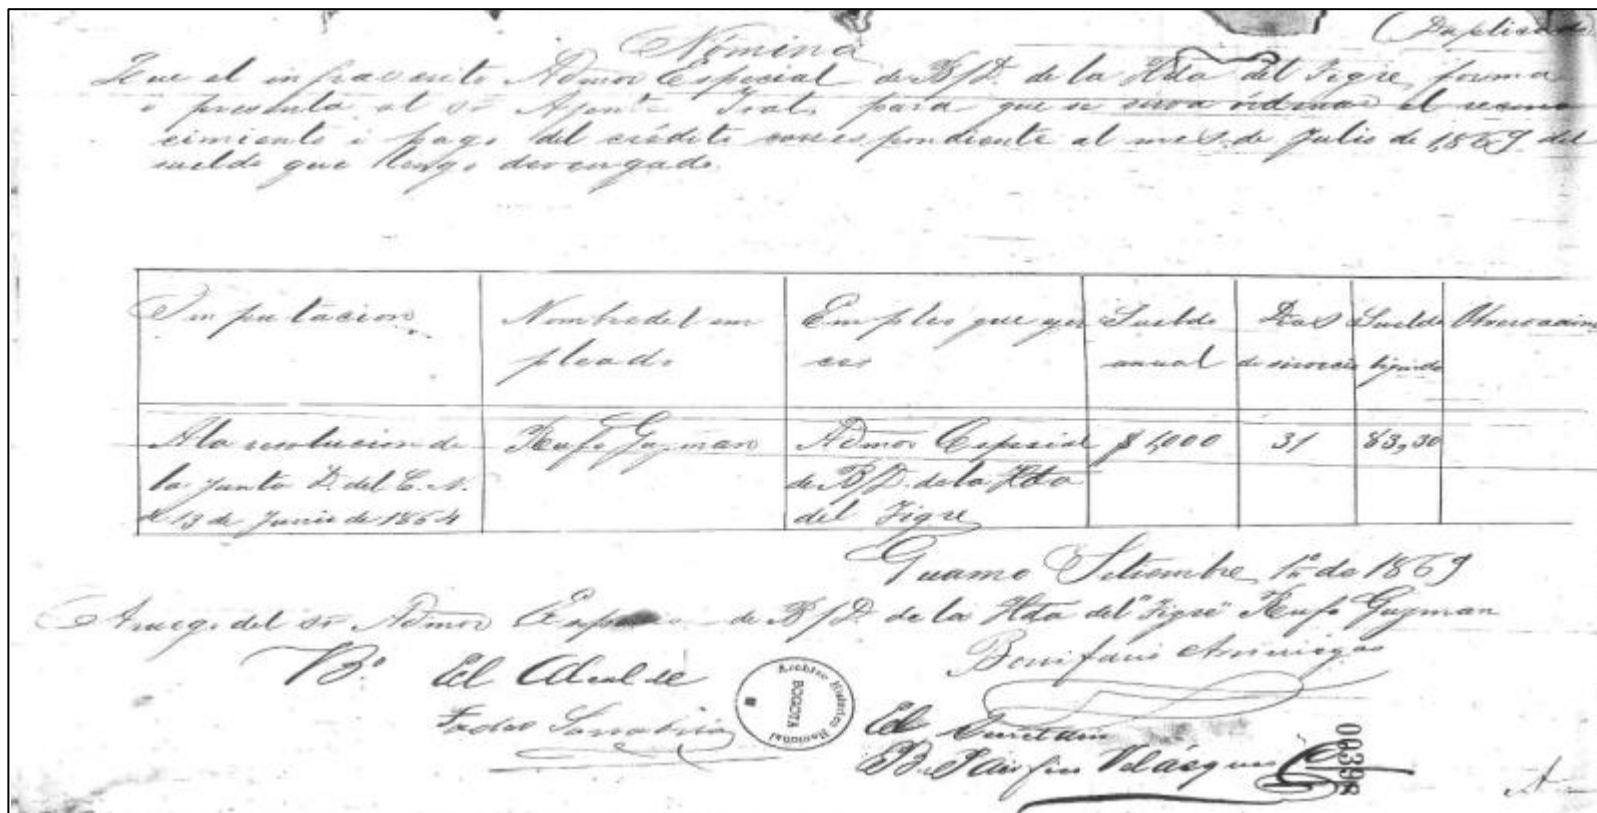 (Duplicado
Nómina
Que el infrascrito Admor Especial de B/D. de la Hda del Tigre, forma
i presenta al Sr Ajente Pral, para que se sirva ordenar el recono
cimiento i pago del crédito correspondiente al mes de Julio de 1,869 del
sueldo que tengo devengado.
Imputacion
Nombre del em
pleado
Empleo que ejer
ce
Sueldo
anual
Dias
de servicio
Sueldo
líquido
Observaciones
A la resolucion de
la Junta D. del C. N.
de 13 de Junio de 1864
Rufo Guzman
Admor Especial
de B/D. de la Hda
del Tigre
$ 1,000
31
83,30
Guamo Setiembre 1º de 1869
A ruego del Sr Admor Especial de B/D. de la Hda del "Tigre" Rufo Guzman
Bonifacio
Vº Bº El Alcalde
Archivo Histórico Nacional
BOGOTA
El
Velásquez
00398